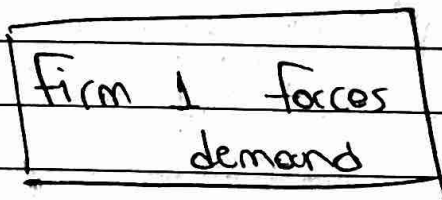 firm 1 forces
demand